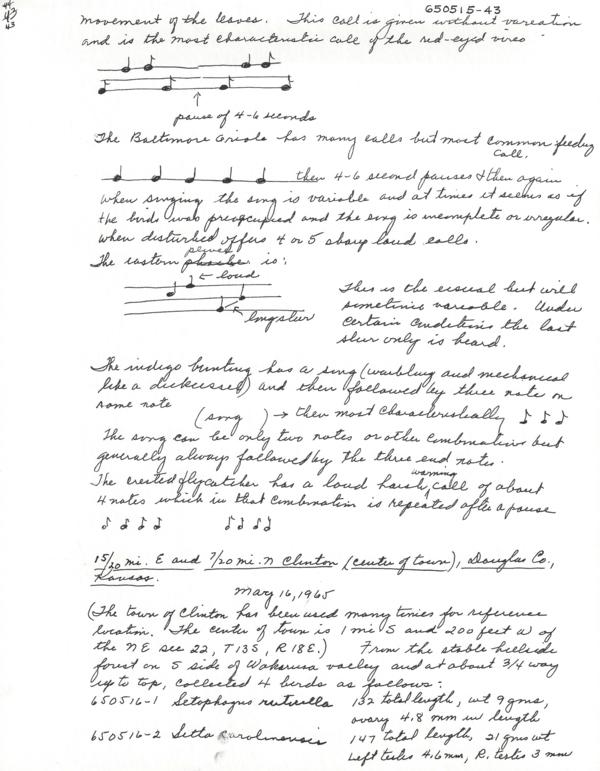 44
43
43
650515-43
movement of the leaves. This call is given without variation
and is the most characteristic call of the red-eyed vireo
pause of 4-6 seconds
The Baltimore Oriole has many calls but most common feeding
call.
then 4-6 second pauses & then again
When singing the song is variable and at times it seems as if
the birds was preoccupied and the song is incomplete or irregular.
When disturbed offers 4 or 5 sharp loud calls.
pewee
The eastern phoebe is:
← loud
long slur
This is the usual but will
sometimes variable. Under
certain conditions the last
slur only is heard.
The indigo bunting has a song (warbling and mechanical
like a dickcissel) and then followed by three note on
same note
(song) → then most characteristically
The song can be only two notes or other combinations but
generally always followed by the three end notes.
warning
The crested flycatcher has a loud harsh, call of about
4 notes which in that combination is repeated after a pause
15/20 mi. E and 7/20 mi. N Clinton (center of town), Douglas Co.,
Kansas.
May 16, 1965
(The town of Clinton has been used many times for reference
location. The center of town is 1 mi S and 200 feet W of
the NE sec 22, T13S, R18E.) From the stable hillside
forest on S side of Wakarusa valley and at about 3/4 way
up to top, collected 4 birds as follows:
650516-1 Setophaga ruticilla 132 total length, wt 9 gms,
ovary 4.8 mm in length
650516-2 Sitta carolinensis 147 total length, 21 gms wt
Left testes 4.6mm, R. testis 3 mm